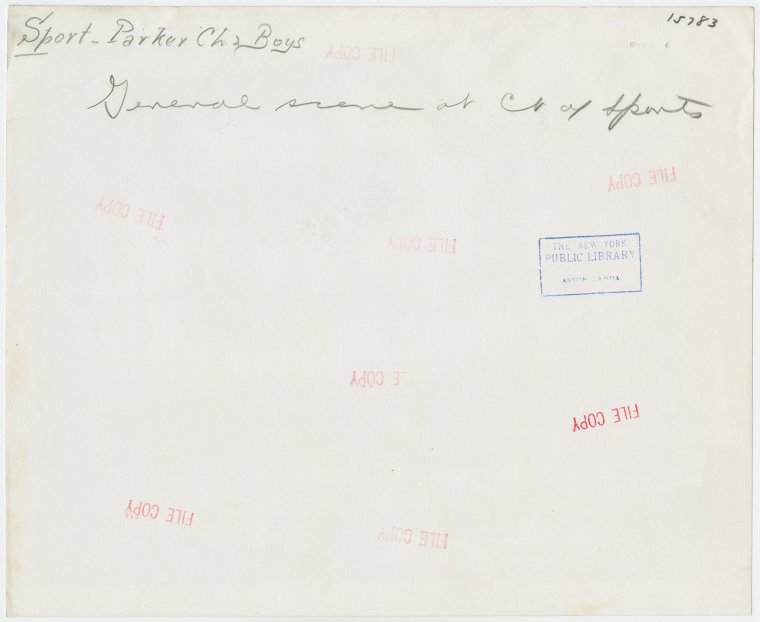 15783
Sport - Parker Ch. 2 Boys
FILE COPY
General scene at Ct of Sports
FILE COPY
FILE COPY
FILE COPY
THE NEW YORK
PUBLIC LIBRARY
ASTOR LENOX
FILE COPY
FILE COPY
FILE COPY
FILE COPY